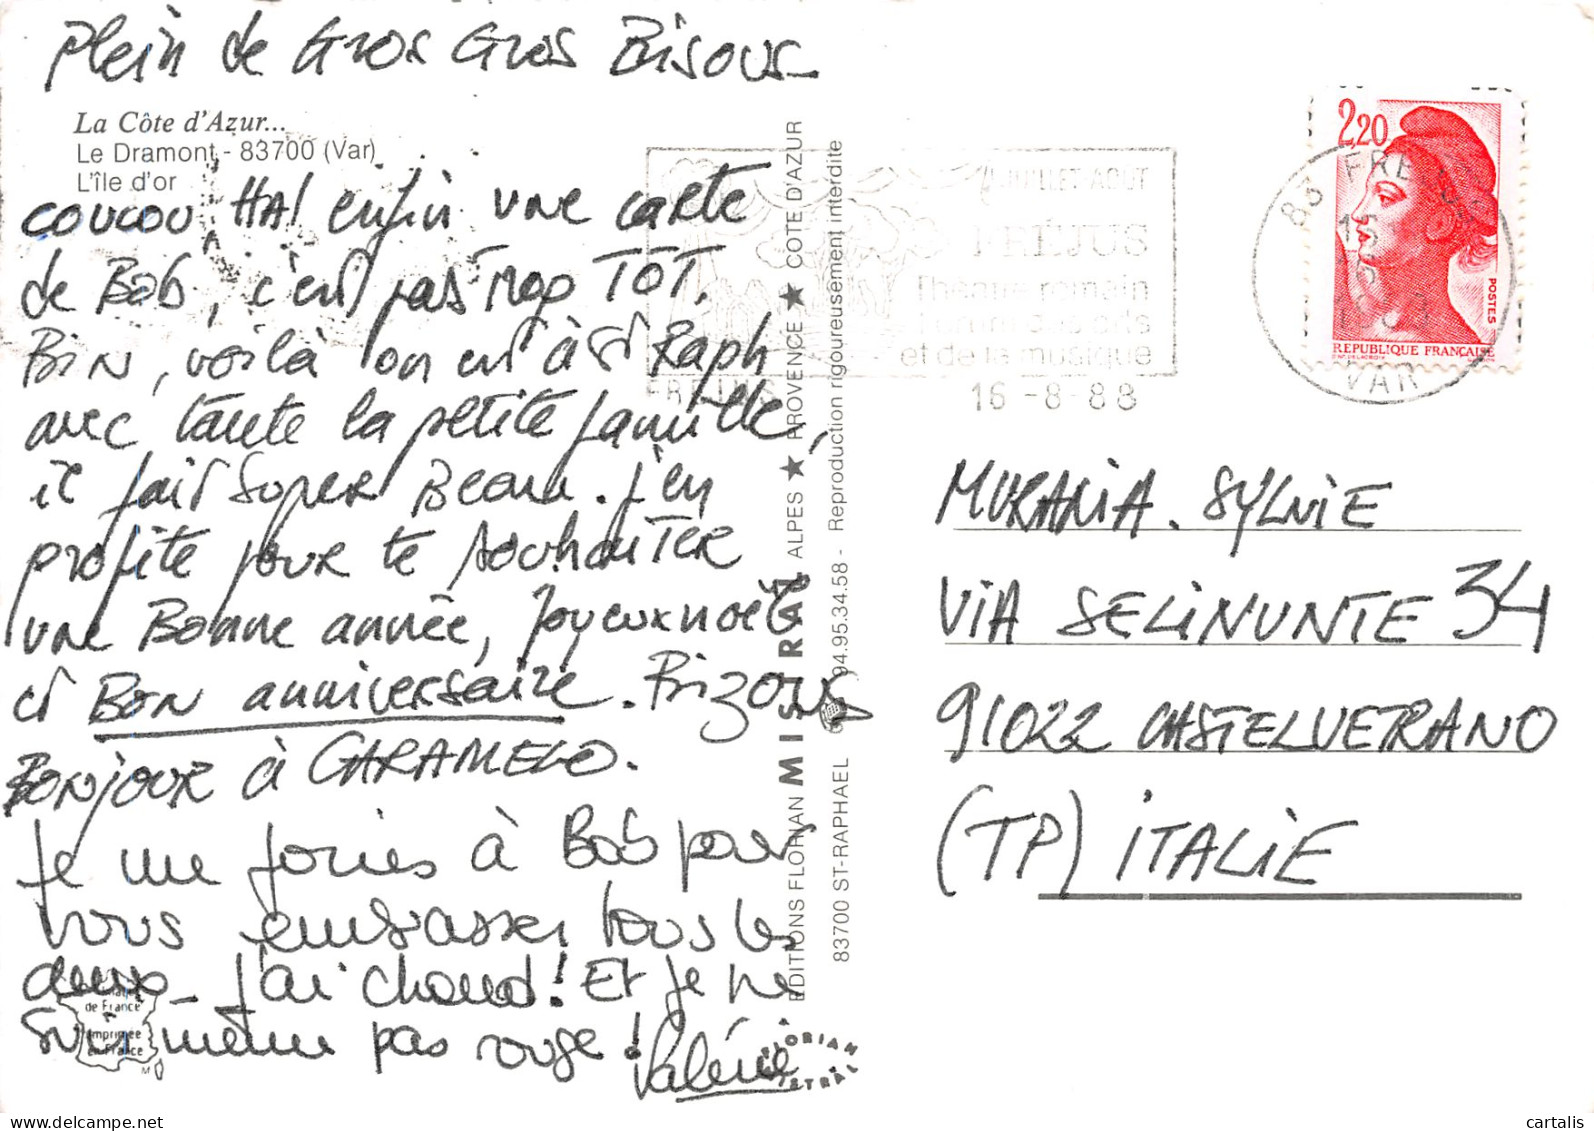 Plein de Gros Gros Bisous
La Côte d'Azur...
Le Dramont - 83700 (Var)
L'île d'or
coucou HA! enfin une carte
de Bob, c'est pas trop TOT.
Bin, voilà on est à St Raph
avec toute la petite famille,
il fait super Beau. J'en
profite pour te souhaiter
une Bonne année, Joyeux noël
et Bon anniversaire. Bizous
Bonjour à CARAMELO.
Je me joins à Bob pour
vous embrasser tous les
deux_ J'ai chaud! Et je ne
suis même pas rouge!
Valérie
de France
Imprimée
en France
EDITIONS FLORIAN MISTRAL ALPES ★ PROVENCE ★ COTE D'AZUR
83700 ST-RAPHAEL 94.95.34.58 - Reproduction rigoureusement interdite
FLORIAN
MISTRAL
JUILLET-AOUT
FRÉJUS
Théâtre romain
Forum des arts
et de la musique
FREJUS
16 -8- 88
83 FREJUS
VAR
2,20
POSTES
REPUBLIQUE FRANÇAISE
MURANIA. SYLVIE
VIA SELINUNTE 34
91022 CASTELVETRANO
(TP) ITALIE
cartalis
delcampe.net